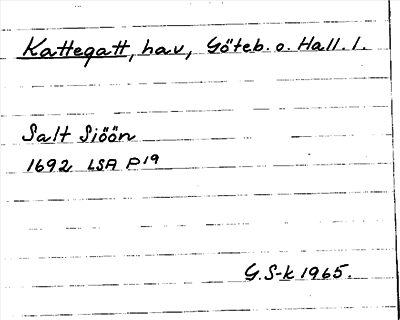 Kattegatt, hav, Göteb. o. Hall. l.
Salt Siöön
1692 LSA P19
G. S-k 1965.